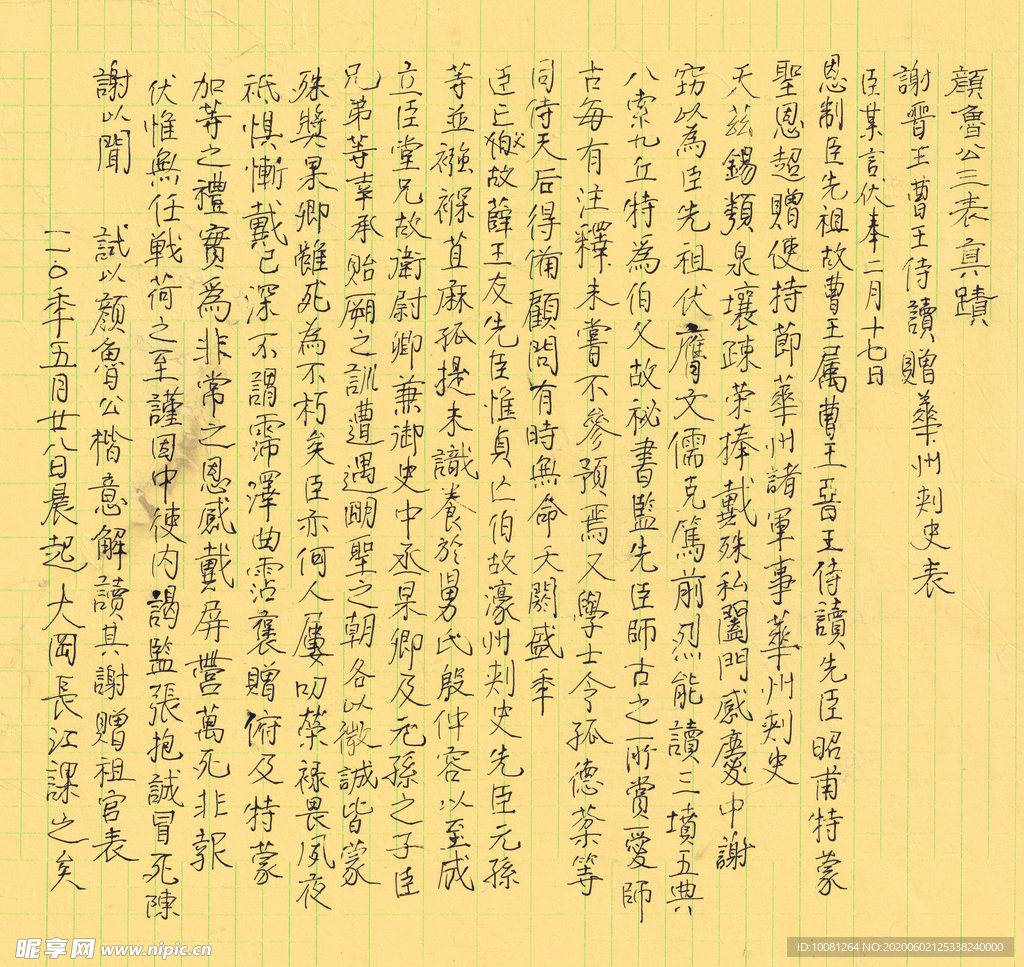 顏魯公三表真蹟
謝晉王曹王侍讀贈華州刺史表
臣某言伏奉二月十七日
恩制臣先祖故曹王属曹王晉王侍讀先臣昭甫特蒙
聖恩超贈使持節華州諸軍事華州刺史
天茲錫類泉壤疎榮捧戴殊私闔門感慶中謝
竊以為臣先祖伏膺文儒克篤前烈能讀三墳五典
八索九丘特為伯父故祕書監先臣師古之所賞愛師
古每有注釋未嘗不參預焉又學士令孤德棻等
同侍天后得備顧問有時無命夭閼盛年
臣亡猷故薛王友先臣惟貞亡伯故濠州刺史先臣元孫
等並襁褓苴麻孤提未識養於舅氏殷仲容以至成
立臣堂兄故衛尉卿兼御史中丞杲卿及元孫之子臣
兄弟等幸承貽厥之訓遭遇明聖之朝各以微誠皆蒙
殊獎果卿雖死為不朽矣臣亦何人屢叨榮祿畏夙夜
祇懼慚戴已深不謂霈澤曲霑褒贈俯及特蒙
加等之禮實為非常之恩感戴屏營萬死非報
伏惟無任戰荷之至謹因中使内謁監張抱誠冒死陳
謝以聞 試以顏魯公楷意解讀其謝贈祖官表
二〇年五月廿八日晨起大岡長江課之矣
昵享网 www.nipic.cn
ID:10081264 NO:20200602125338240000